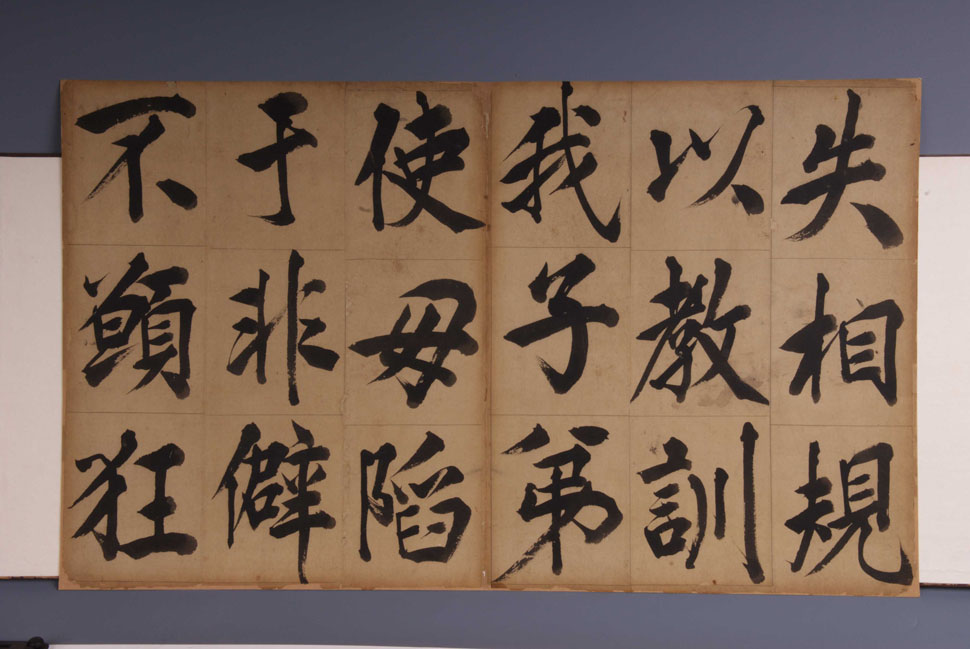 失相規
以教訓
我子弟
使毋陷
于非僻
不願狂